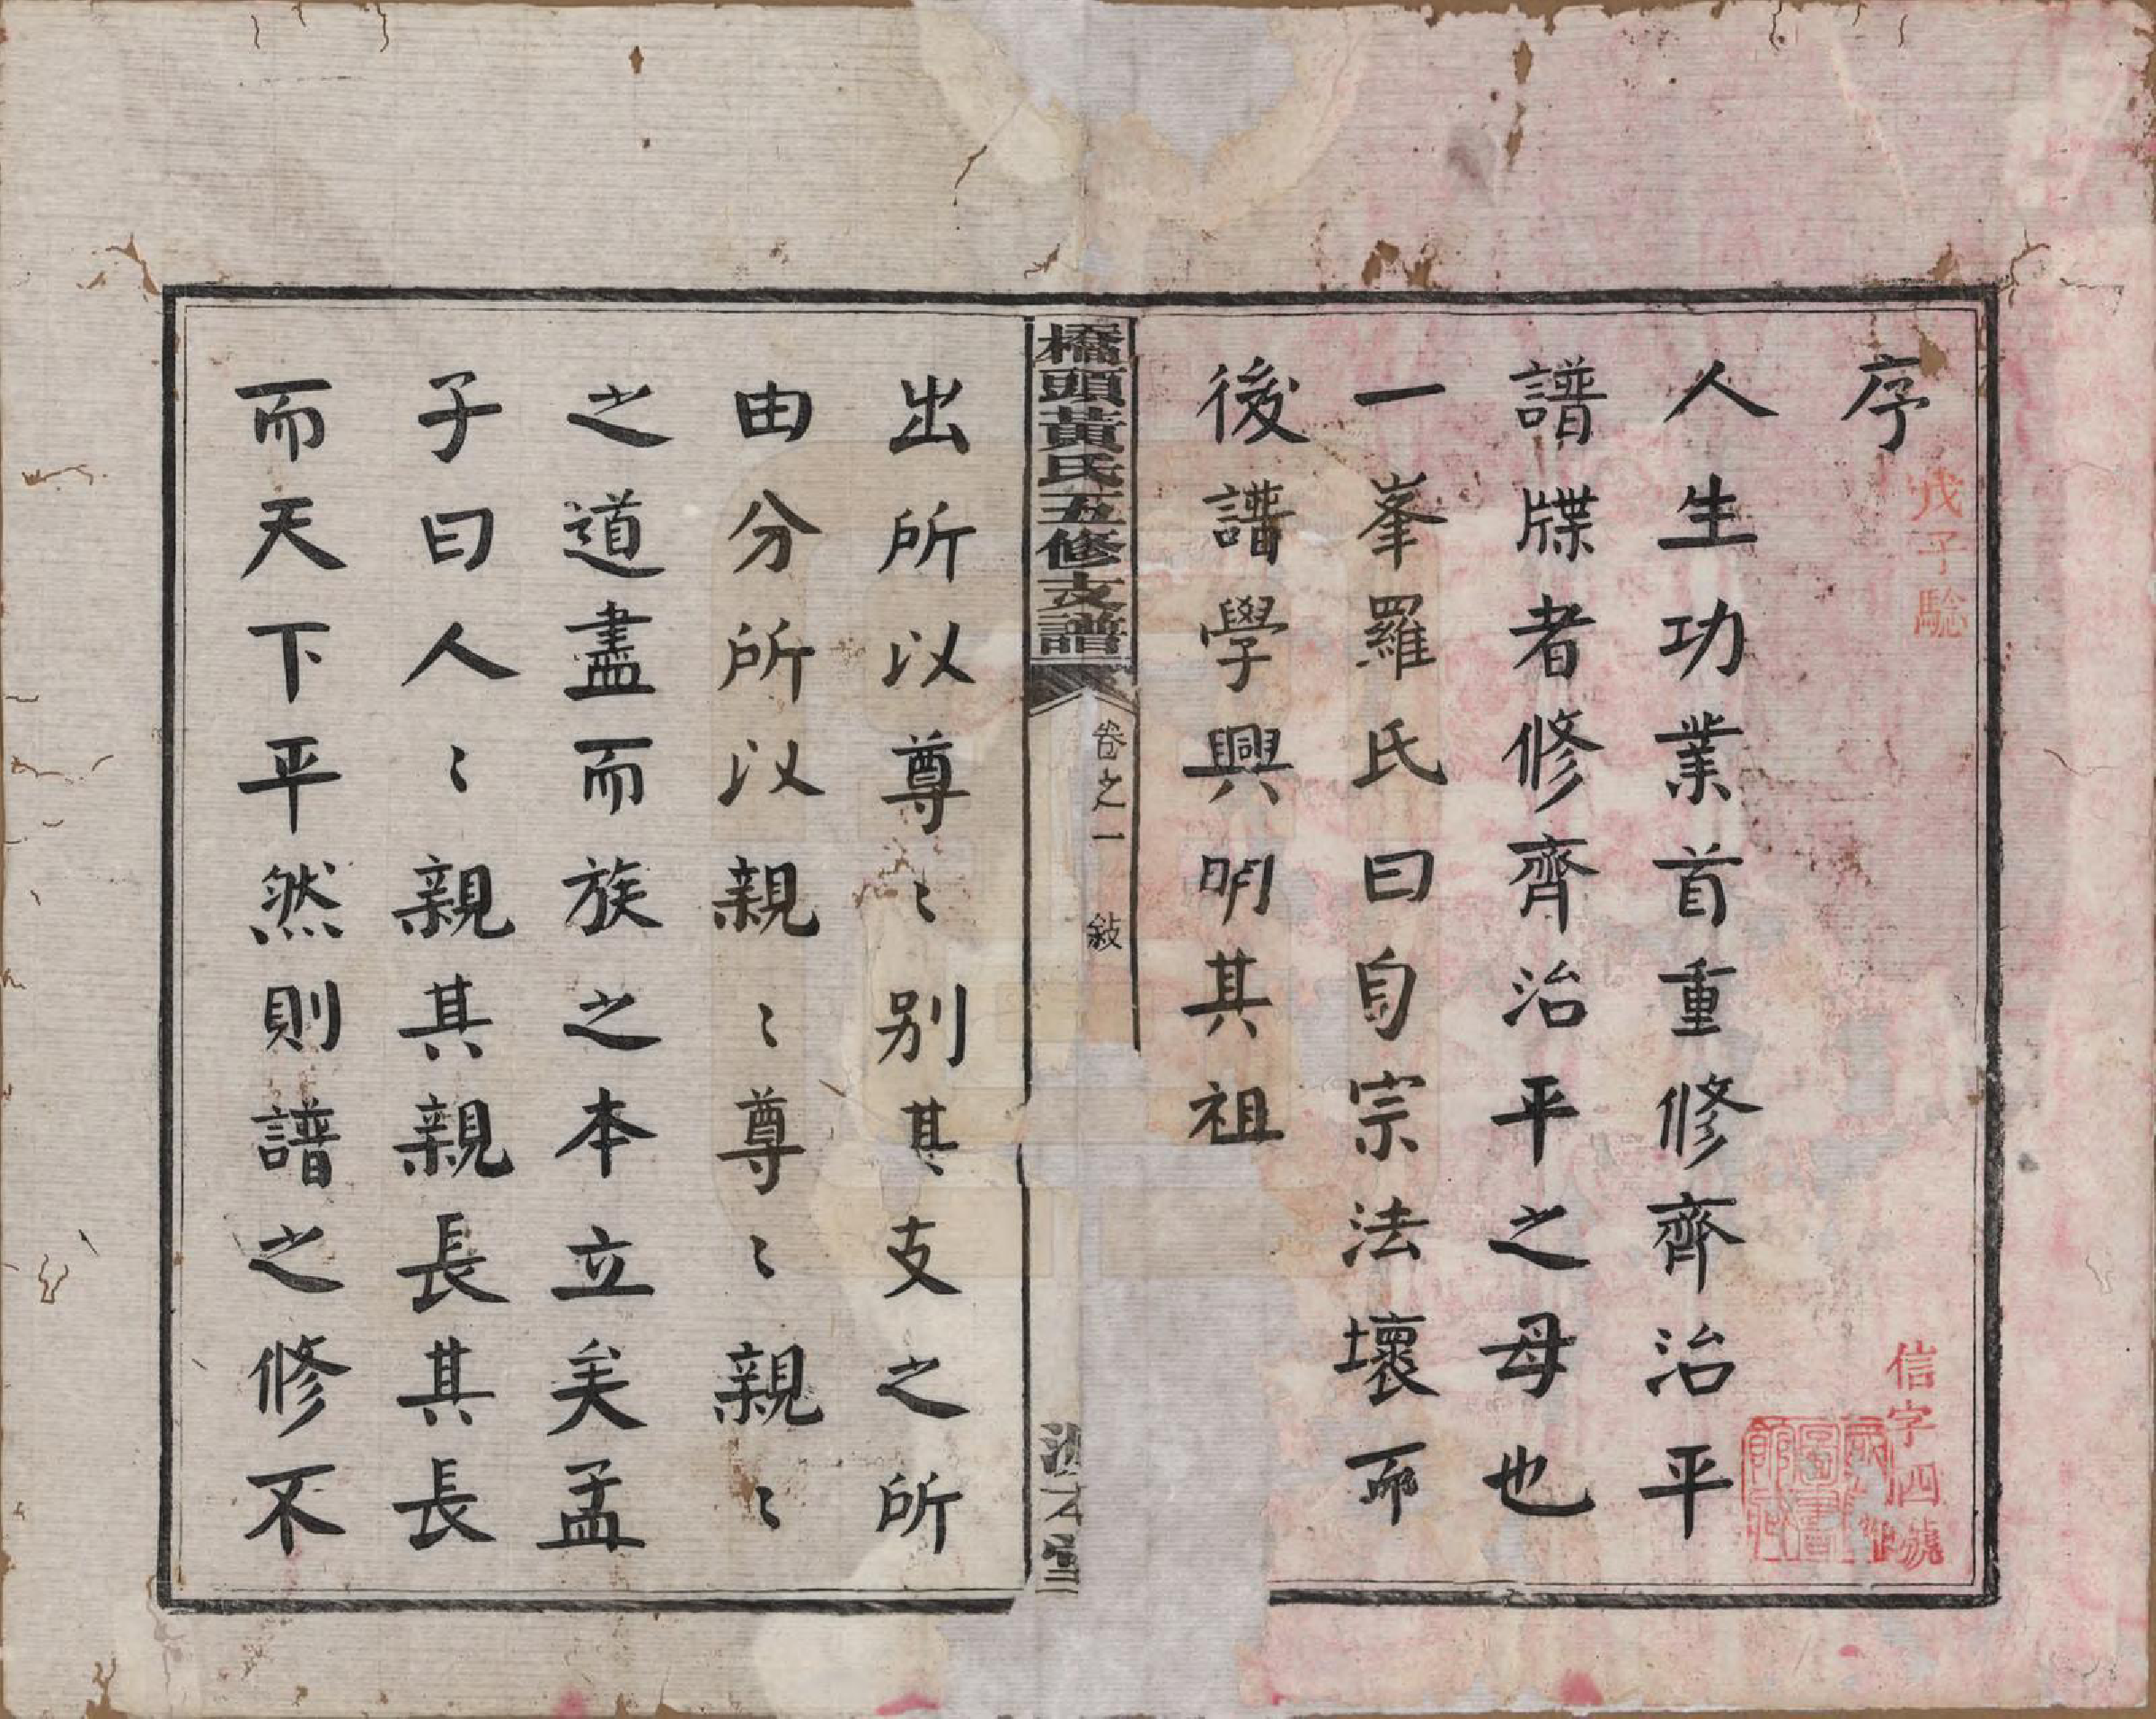 序
戊子騐
信字四號
人生功業首重修齊治平
譜牒者修齊治平之母也
一峯羅氏曰自宗法壞而
後譜學興明其祖
橋頭黃氏五修支譜
卷之一
敍
出所以尊〻别其支之所
由分所以親〻尊〻親〻
之道盡而族之本立矣孟
子曰人〻親其親長其長
而天下平然則譜之修不